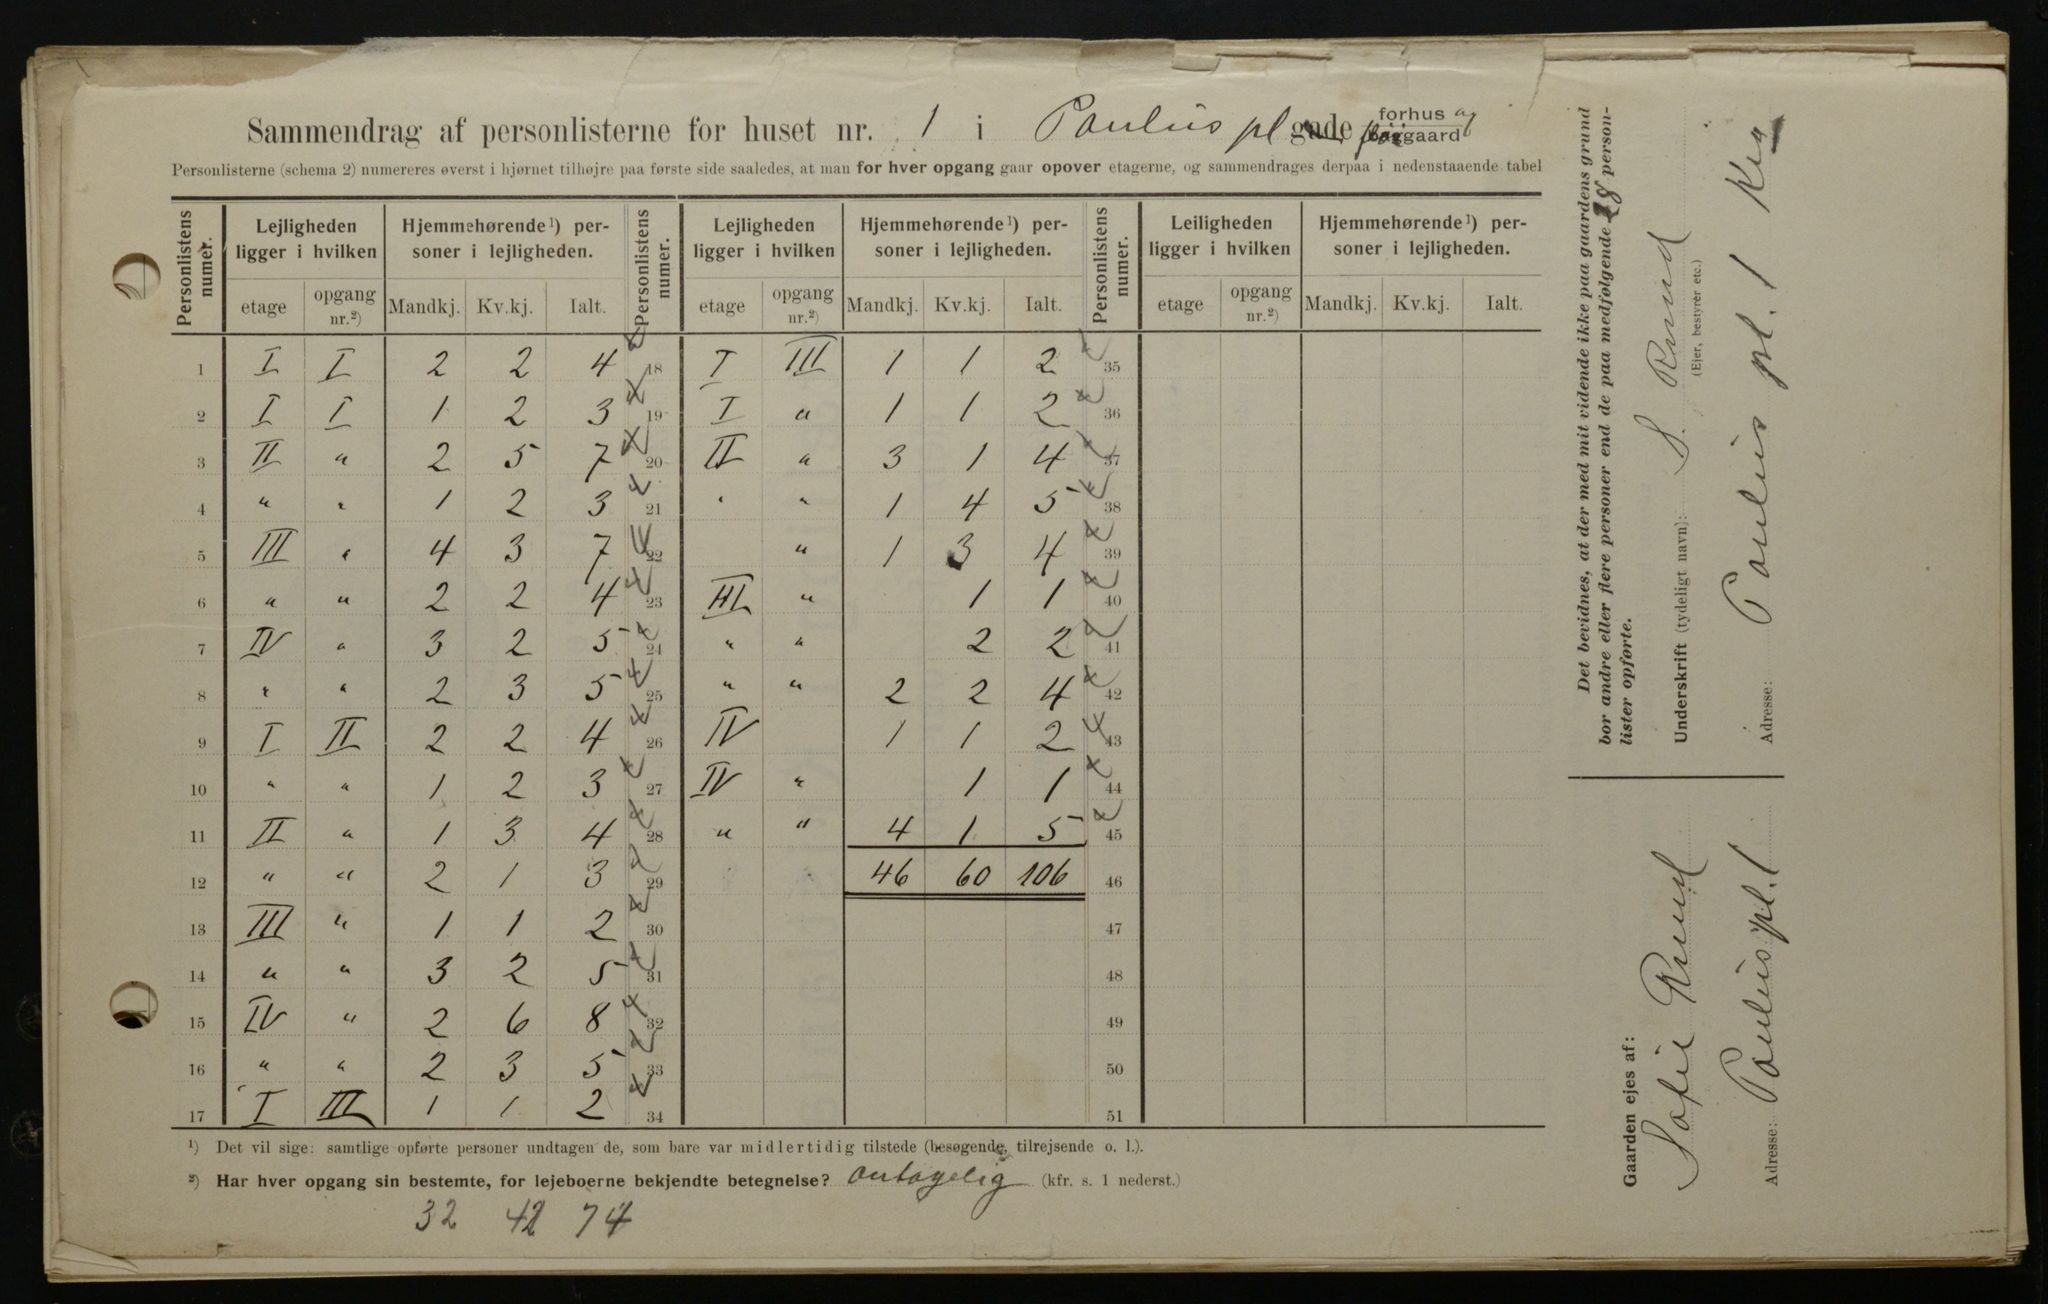 Sammendrag af personlisterne for huset nr. 1 i Paulus pl gade forhus og baggaard
Personlisterne (schema 2) numereres øverst i hjørnet tilhøjre paa første side saaledes, at man for hver opgang gaar opover etagerne, og sammendrages derpaa i nedenstaaende tabel
Personlistens numer. Lejligheden ligger i hvilken Hjemmehørende¹) personer i lejligheden. Personlistens numer. Lejligheden ligger i hvilken Hjemmehørende¹) personer i lejligheden. Personlistens numer. Leiligheden ligger i hvilken Hjemmehørende¹) personer i lejligheden.
etage opgang nr.²) Mandkj. Kv.kj. Ialt. etage opgang nr.²) Mandkj. Kv.kj. Ialt. etage opgang nr.²) Mandkj. Kv.kj. Ialt.
1 I I 2 2 4 18 I III 1 1 2 35
2 I I 1 2 3 19 I " 1 1 2 36
3 II " 2 5 7 20 II " 3 1 4 37
4 " " 1 2 3 21 " " 1 4 5 38
5 III " 4 3 7 22 " 1 3 4 39
6 " " 2 2 4 23 III " 1 1 40
7 IV " 3 2 5 24 " " 2 2 41
8 " " 2 3 5 25 " " 2 2 4 42
9 I II 2 2 4 26 IV 1 1 2 43
10 " " 1 2 3 27 IV " 1 1 44
11 II " 1 3 4 28 " " 4 1 5 45
12 " " 2 1 3 29 46 60 106 46
13 III " 1 1 2 30 47
14 " " 3 2 5 31 48
15 IV " 2 6 8 32 49
16 " " 2 3 5 33 50
17 I III 1 1 2 34 51
¹) Det vil sige: samtlige opførte personer undtagen de, som bare var midlertidig tilstede (besøgende, tilrejsende o. l.).
²) Har hver opgang sin bestemte, for lejeboerne bekjendte betegnelse? antagelig (kfr. s. 1 nederst.)
32 42 74
Det bevidnes, at der med mit vidende ikke paa gaardens grund
bor andre eller flere personer end de paa medfølgende 28 person-
lister opførte.
Underskrift (tydeligt navn): S. Ruud
(Ejer, bestyrer etc.)
Adresse: Paulus pl. 1
Gaarden ejes af:
Sofie Ruud
Adresse: Paulus pl. 1